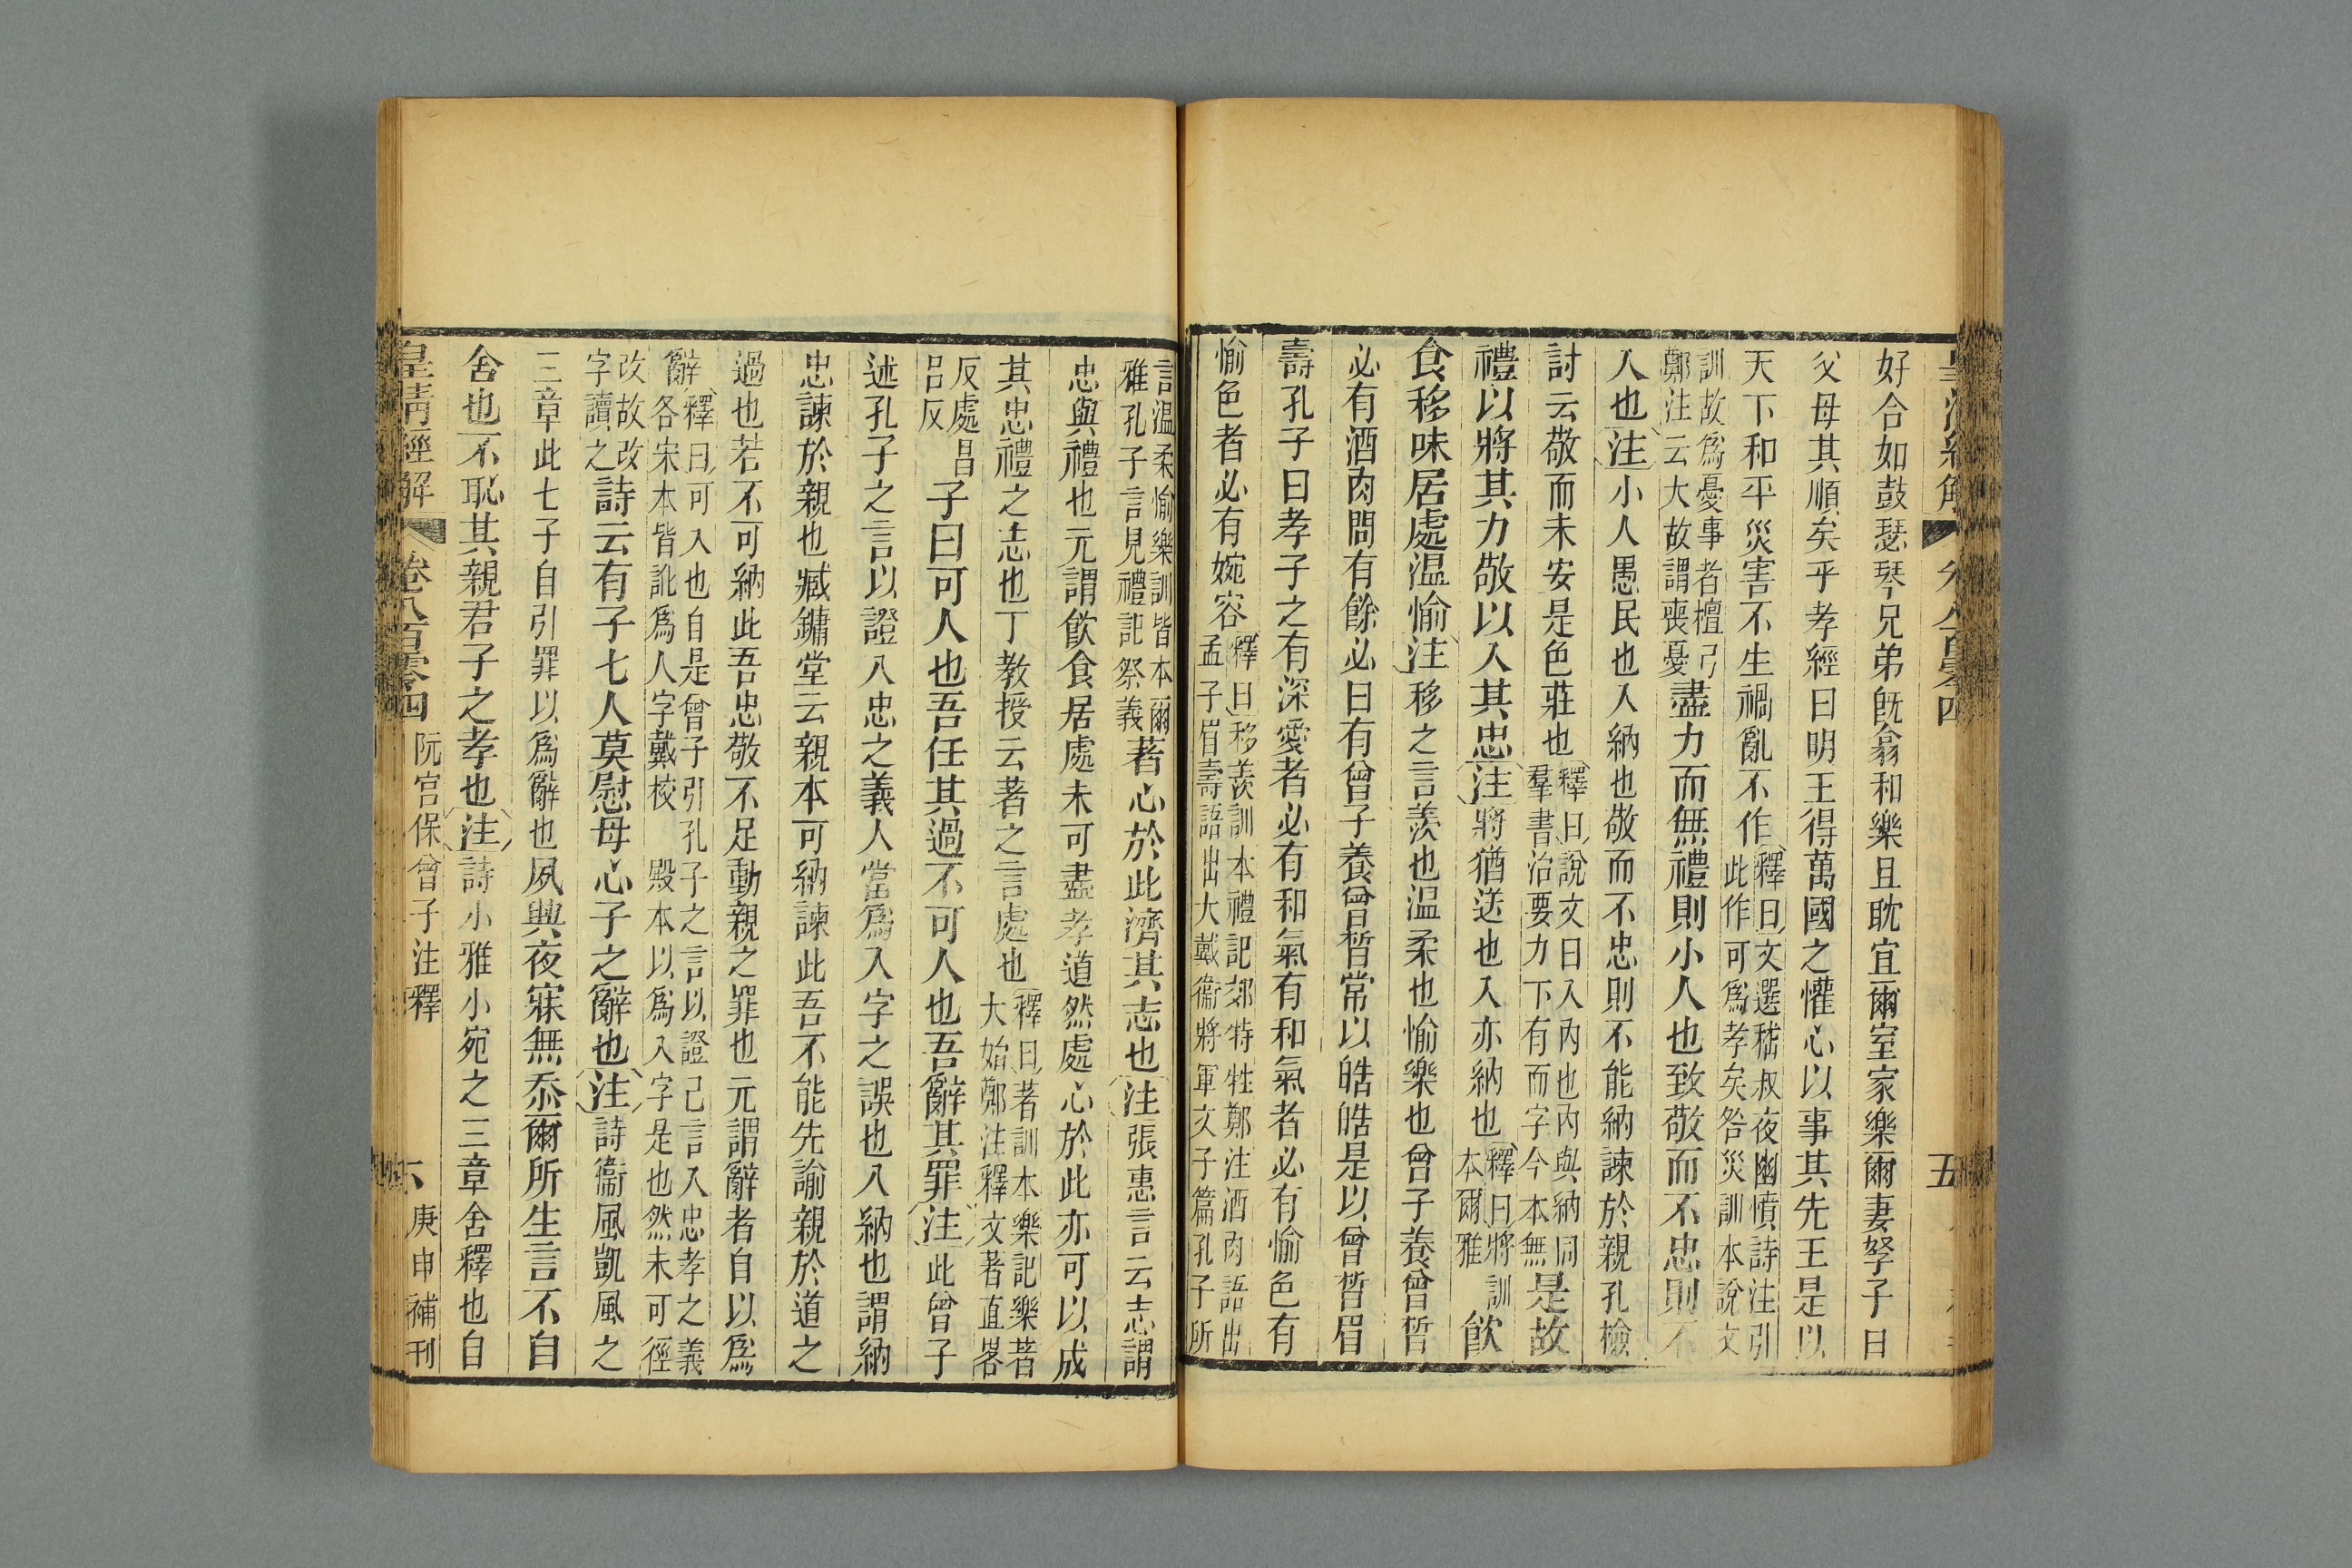 好合如鼓瑟琴兄弟旣翕和樂且耽宜爾室家樂爾妻孥子曰
父母其順矣乎孝經曰明王得萬國之懽心以事其先王是以
天下和平災害不生禍亂不作釋曰文選嵇叔夜幽憤詩注引此作可爲孝矣咎災訓本說文
訓故爲憂事者檀弓鄭注云大故謂喪憂盡力而無禮則小人也致敬而不忠則不
入也注小人愚民也入納也敬而不忠則不能納諫於親孔檢
討云敬而未安是色莊也釋曰說文曰入內也內與納同羣書治要力下有而字今本無是故
禮以將其力敬以入其忠注將猶送也入亦納也釋曰將訓本爾雅飮
食移味居處溫愉注移之言羨也溫柔也愉樂也曾子養曾晳
必有酒肉問有餘必曰有曾子養曾晳常以皓皓是以曾晳眉
壽孔子曰孝子之有深愛者必有和氣有和氣者必有愉色有
愉色者必有婉容釋曰移羨訓本禮記郊特牲鄭注酒肉語出孟子眉壽語出大戴衞將軍文子篇孔子所
言溫柔愉樂訓皆本爾雅孔子言見禮記祭義著心於此濟其志也注張惠言云志謂
忠與禮也元謂飮食居處未可盡孝道然處心於此亦可以成
其忠禮之志也丁教授云著之言處也釋曰著訓本樂記樂著大始鄭注釋文著直畧
反處昌呂反子曰可人也吾任其過不可人也吾辭其罪注此曾子
述孔子之言以證入忠之義人當爲入字之誤也入納也謂納
忠諫於親也臧鏞堂云親本可納諫此吾不能先諭親於道之
過也若不可納此吾忠敬不足動親之罪也元謂辭者自以爲
辭釋曰可入也自是曾子引孔子之言以證己言入忠孝之義各宋本皆訛爲人字戴校殿本以爲入字是也然未可徑
改故改字讀之詩云有子七人莫慰母心子之辭也注詩衞風凱風之
三章此七子自引罪以爲辭也夙興夜寐無忝爾所生言不自
舍也不恥其親君子之孝也注詩小雅小宛之三章舍釋也自
皇清經解 卷八百零四 阮宮保曾子注釋 六 庚申補刊